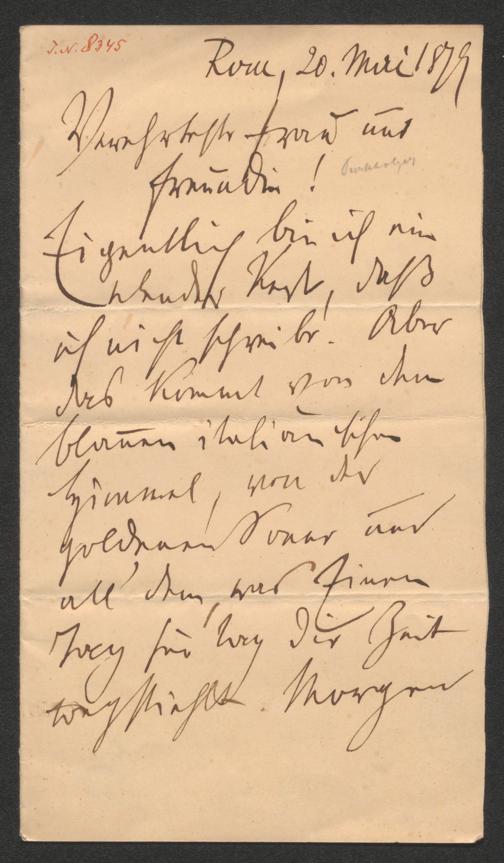 I.N. 8345
Rom, 20. Mai 1879
Verehrteste Frau und
Freundin!
Eigentlich bin ich ein
elender Kerl, daß
ich nicht schreibe. Aber
das kommt von dem
blauen italiänischen
Himmel, von der
goldenen Sonne und
all' dem, was Einem
Tag für Tag die Zeit
wegstiehlt. Morgen